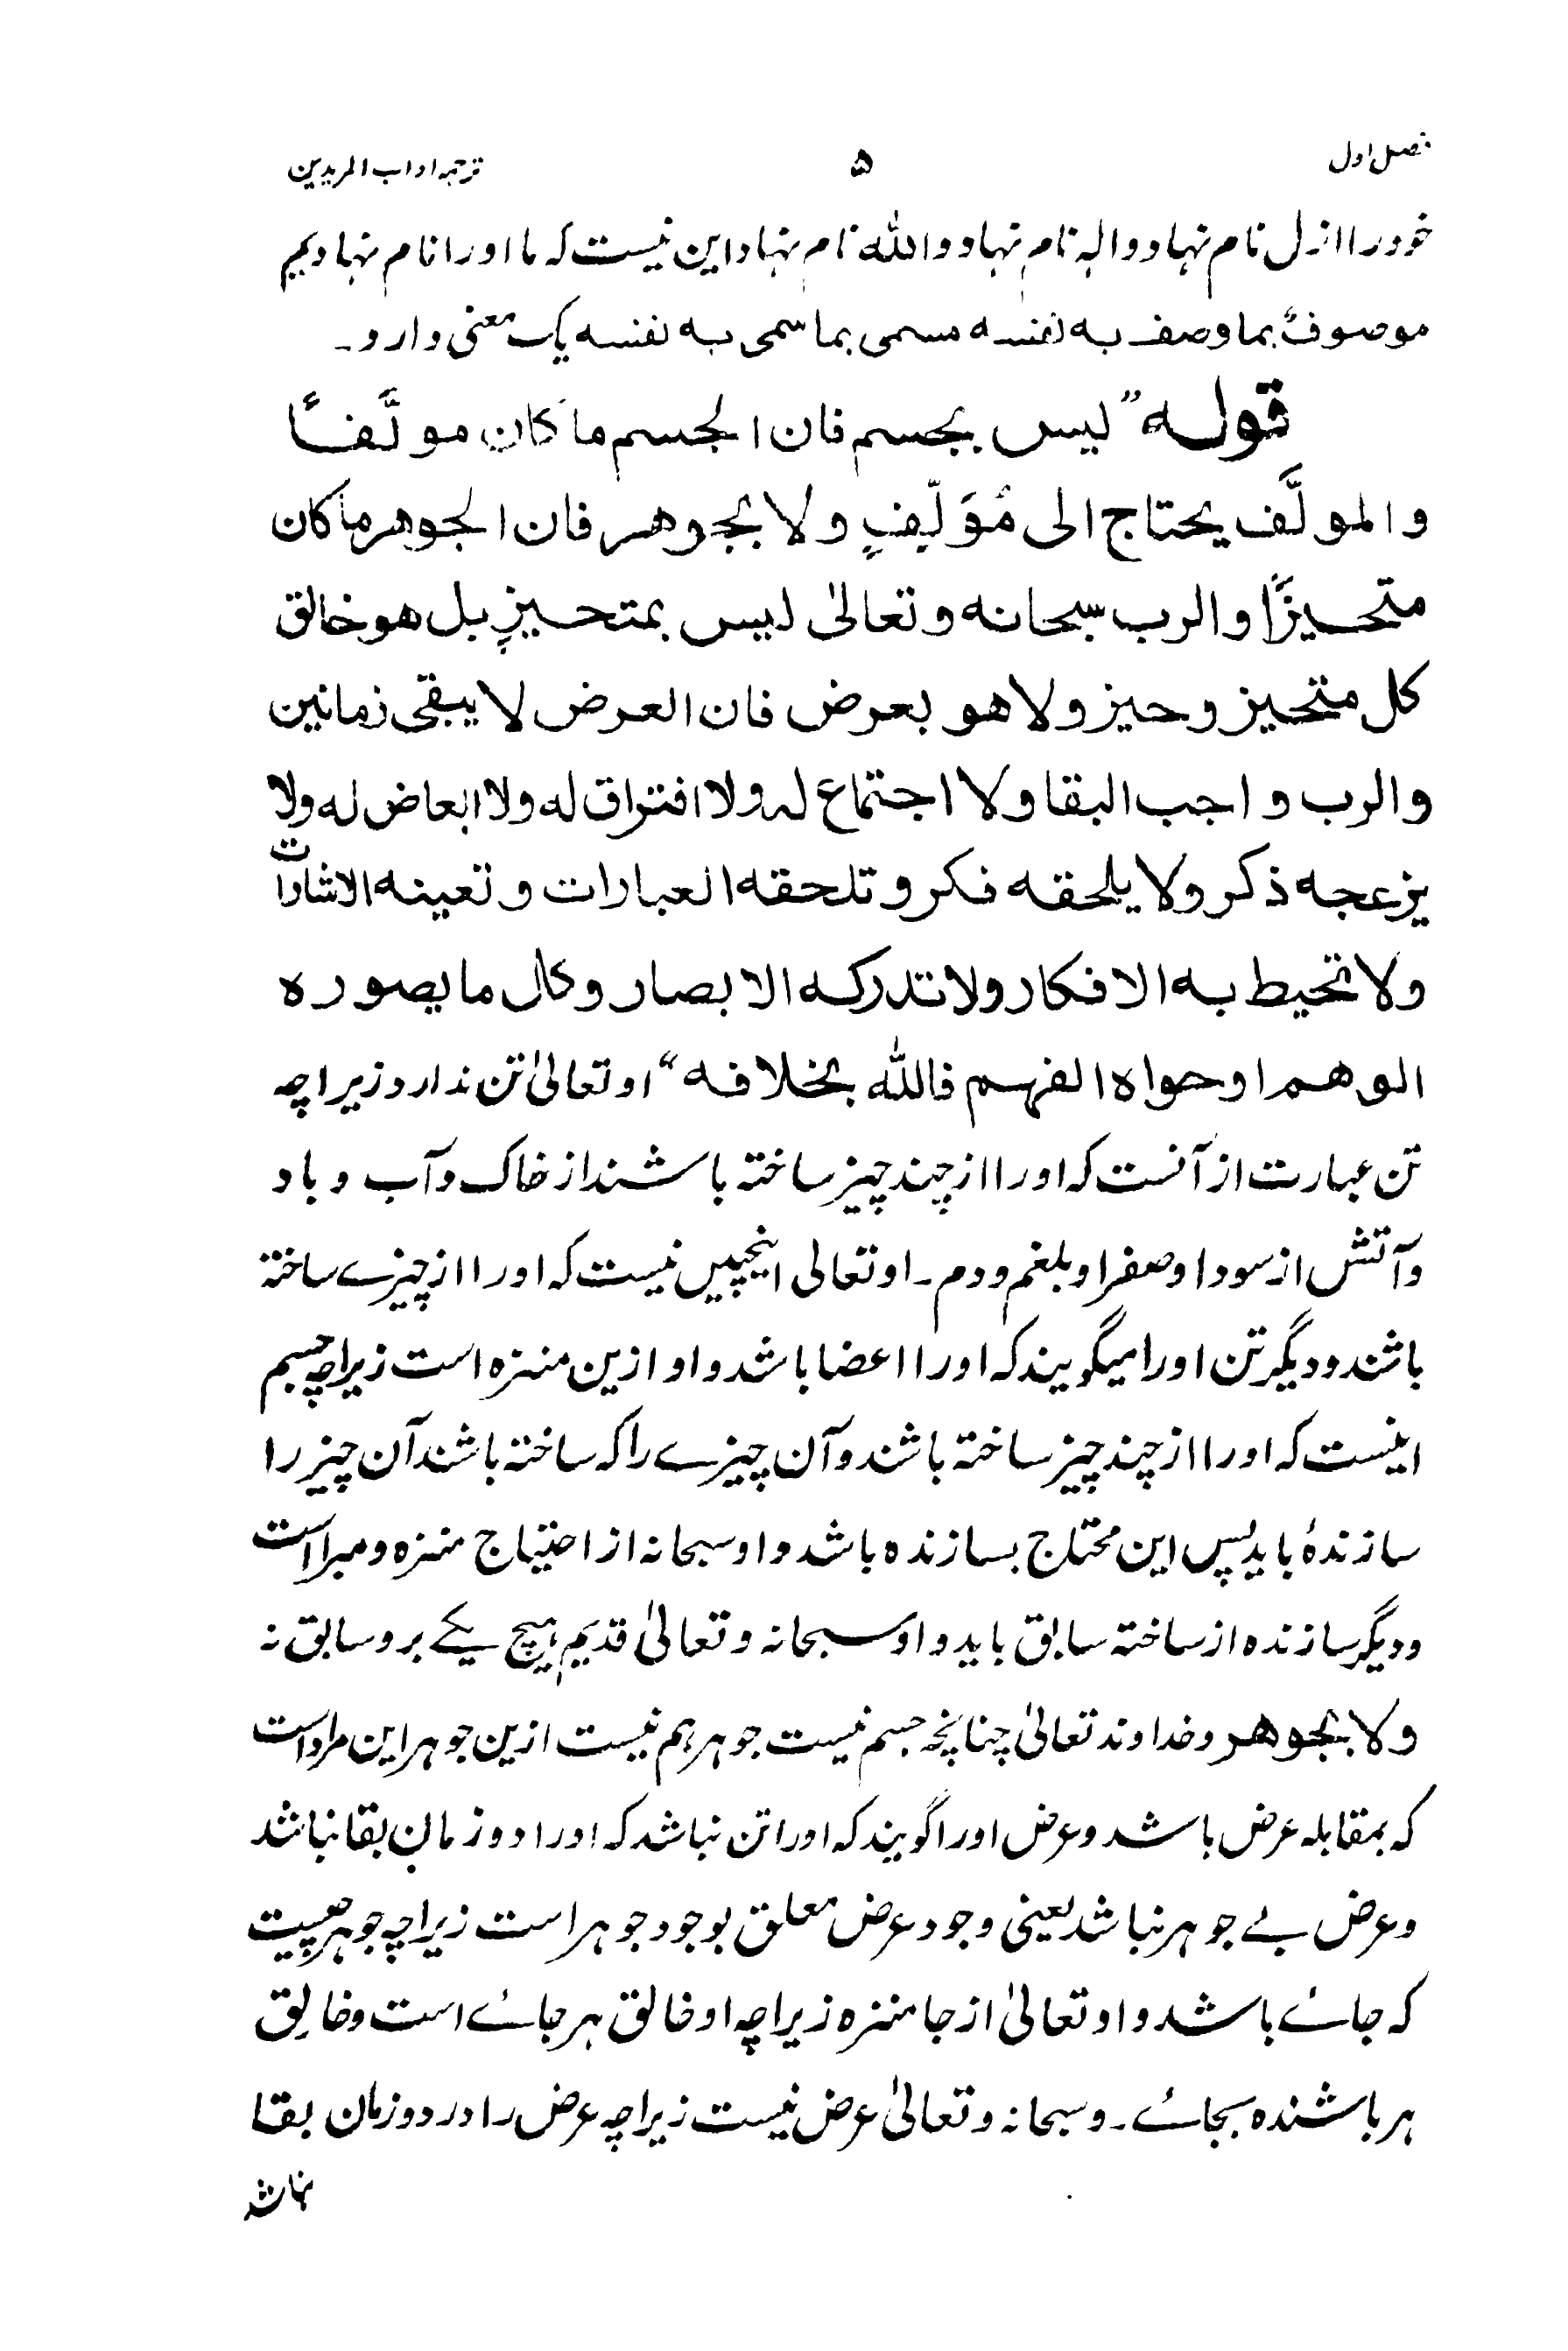 فصل اول ۵ ترجمہ اداب المریدین
خود را ازل نام نہاد و الہ نام نہاد و اللہ نام نہاد این نیست کہ ما اورا نام نہادیم
موصوفٌ بما وصف به نفسه مسمی بما سمی به نفسه یک معنی دارو۔
قوله ”لیس بجسم فان الجسم ما کان مولَّفًا
والمولَّف یحتاج الی مُؤَلِّفٍ ولا بجوهر فان الجوهر ما کان
متحیزًا والرب سبحانه وتعالیٰ لیس بمتحیزٍ بل هو خالق
کل متحیز وحیز ولا هو بعرض فان العرض لا یبقی زمانین
والرب واجب البقا ولا اجتماع له ولا افتراق له ولا ابعاض له ولا
یزعجه ذکر ولا یلحقه فکر وتلحقه العبارات وتعینه الاشارات
ولا تحیط به الافکار ولا تدرکه الابصار وکل ما یصوره
الوهم او حواه الفهم فالله بخلافه“ او تعالیٰ تن ندارد زیراچه
تن عبارت از آنست کہ اورا از چند چیز ساختہ باشند از خاک و آب و باد
و آتش از سودا و صفرا و بلغم و دم۔ او تعالی اینچنیں نیست کہ اورا از چیزے ساختہ
باشند و دیگر تن اورا میگویند کہ اورا اعضا باشد و او ازین منزہ است زیراچہ جسم
اینست کہ اورا از چند چیز ساختہ باشند و آن چیزے را کہ ساختہ باشند آن چیز را
سازندۂ باید پس این محتاج بسازندہ باشد و او سبحانہ از احتیاج منزہ و مبرا است
و دیگر سازندہ از ساختہ سابق باید و او سبحانہ و تعالیٰ قدیم ہیچ یکے برو سابق نہ
ولا بجوهر و خداوند تعالیٰ چنانچہ جسم نیست جوہر ہم نیست ازین جوہر این مراد است
کہ بمقابلہ عرض باشد و عرض اورا گویند کہ اورا تن نباشد کہ اورا دو زمان بقا نباشد
و عرض بے جوہر نباشد یعنی وجود عرض معلق بوجود جوہر است زیراچہ جوہر چیست
کہ جائے باشد و او تعالیٰ از جا منزہ زیراچہ او خالق ہر جائے است و خالِق
ہر باشندہ بجائے۔ و سبحانہ و تعالیٰ عرض نیست زیراچہ عرض را در دو زمان بقا
نباشد